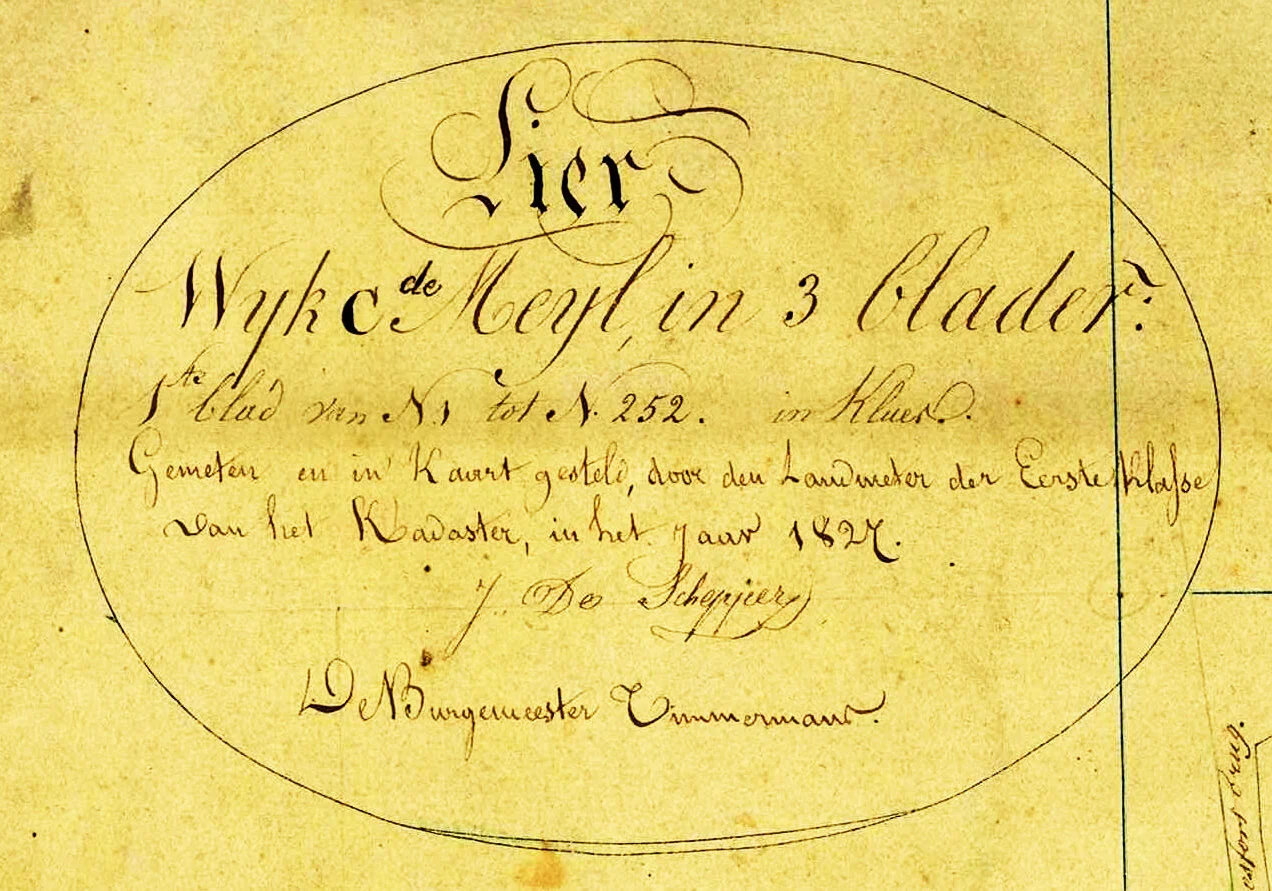 Lier
Wyk C de Meyl, in 3 blader.
1ste blad van N.1 tot N. 252. in
Gemeten en in Kaart gesteld, door den Landmeter der Eerste Klasse
van het Kadaster, in het Jaar 1827.
J. De
De Burgemeester Timmermans.
brug.